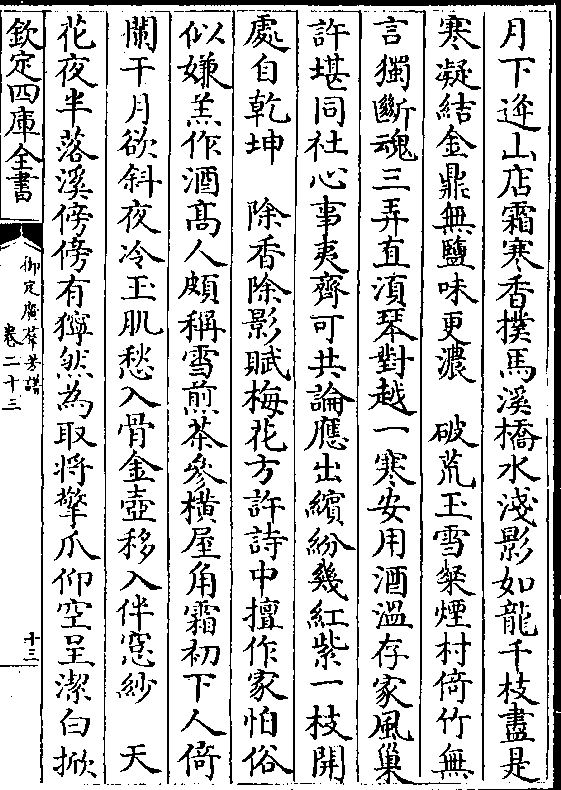 月下逢山店霜寒香撲馬溪橋水淺影如龍千枝盡是
寒凝結金鼎無鹽味更濃　破荒玉雪粲煙村倚竹無
言獨斷魂三弄直湏琴對越一寒安用酒温存家風巢
許堪同社心事夷齊可共論應出繽紛幾紅紫一枝開
處自乾坤　除香除影賦梅花方許詩中擅作家怕俗
似嫌羔作酒髙人頗稱雪煎茶參横屋角霜初下人倚
闌干月欲斜夜冷玉肌愁入骨金壺移入伴窓紗　天
花夜半落溪傍傍有獰然為取将擎爪仰空呈潔白掀
欽定四庫全書
御定廣羣芳譜
卷二十三
十三